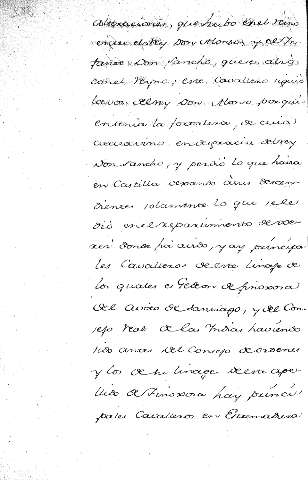 alteraciones, que hubo en el reino
entre el Rey Don Alonso, y el In
fante Don Sancho, que se alzó
con el Reyno; este Cavallero siguió
la voz del Rey Don Alonso, por qui
en tenia la fortaleza, de cuia
causa vino en desgracia del Rey
Don Sancho, y perdió lo que havia
en Castilla dexando a sus descen
dientes solamente lo que se les
dió en el repartimiento de
donde ha avido, y ay principa
les Cavalleros de este linage de
los quales es Gedeon de Hinoxosa
del Avito de Santiago, y del Con
sejo Real de las Indias haviendo
sido antes del Consejo de ordenes
y los de su linage de este ape
llido de Hinoxosa hay princi
pales Cavalleros en Extremadura